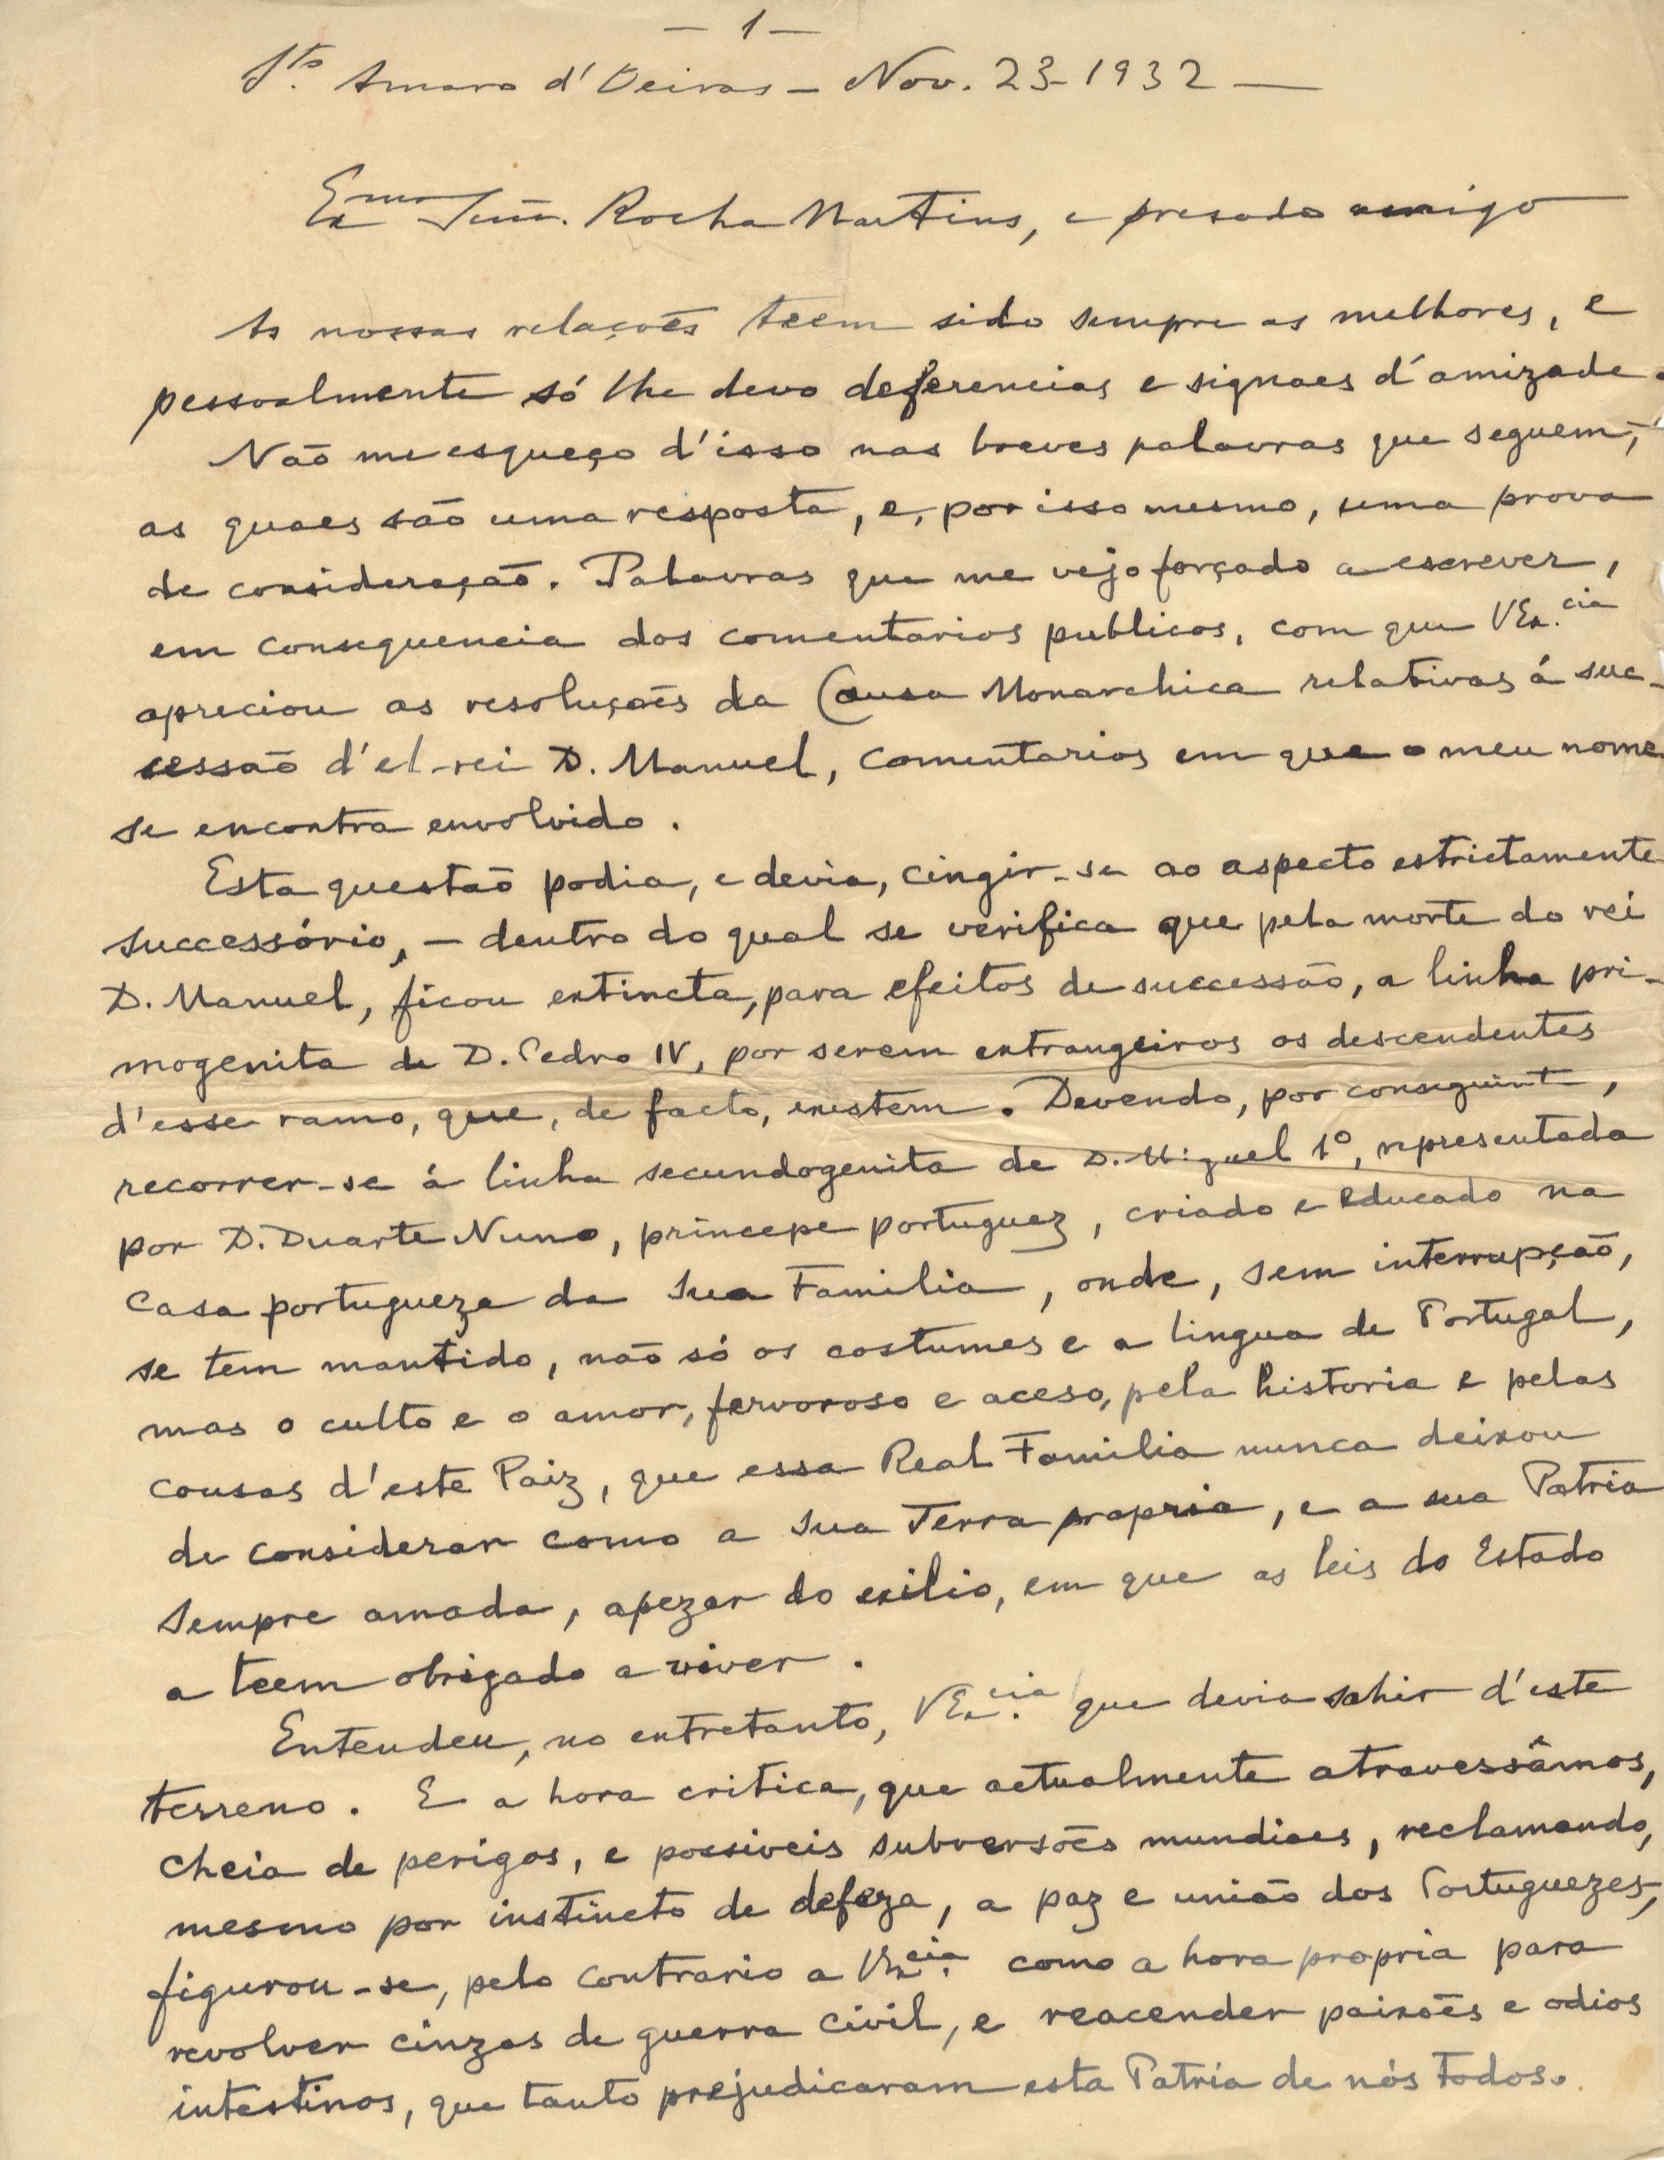 — 1 —
Sto. Amaro d'Oeiras — Nov. 23-1932 —
Exmo Senr. Rocha Martins, e presado amigo
As nossas relações teem sido sempre as melhores, e
pessoalmente só lhe devo deferencias e signaes d'amizade.
Não me esqueço d'isso nas breves palavras que seguem,
as quaes são uma resposta, e, por isso mesmo, uma prova
de consideração. Palavras que me vejo forçado a escrever,
em consequencia dos comentarios publicos, com que V Ex.cia
apreciou as resoluções da Causa Monarchica relativas á suc-
cessão d'el-rei D. Manuel, comentarios em que o meu nome
se encontra envolvido.
Esta questão podia, e devia, cingir-se ao aspecto estrictamente
successório, — dentro do qual se verifica que pela morte do rei
D. Manuel, ficou extincta, para efeitos de successão, a linha pri-
mogenita de D. Pedro IV, por serem extrangeiros os descendentes
d'esse ramo, que, de facto, existem. Devendo, por conseguinte,
recorrer-se á linha secundogenita de D. Miguel 1º, representada
por D. Duarte Nuno, princepe portuguez, criado e educado na
casa portugueza da sua Familia, onde, sem interrupção,
se tem mantido, não só os costumes e a lingua de Portugal,
mas o culto e o amor, fervoroso e aceso, pela historia e pelas
cousas d'este Paiz, que essa Real Familia nunca deixou
de considerar como a sua Terra propria, e a sua Patria
sempre amada, apezar do exilio, em que as leis do Estado
a teem obrigado a viver.
Entendeu, no entretanto, V Ex.cia que devia sahir d'este
terreno. E a hora critica, que actualmente atravessâmos,
cheia de perigos, e possiveis subversões mundiaes, reclamando,
mesmo por instincto de defeza, a paz e união dos Portuguezes,
figurou-se, pelo contrario a V Ex.cia como a hora propria para
revolver cinzas de guerra civil, e reacender paixões e odios
intestinos, que tanto prejudicaram esta Patria de nós todos.